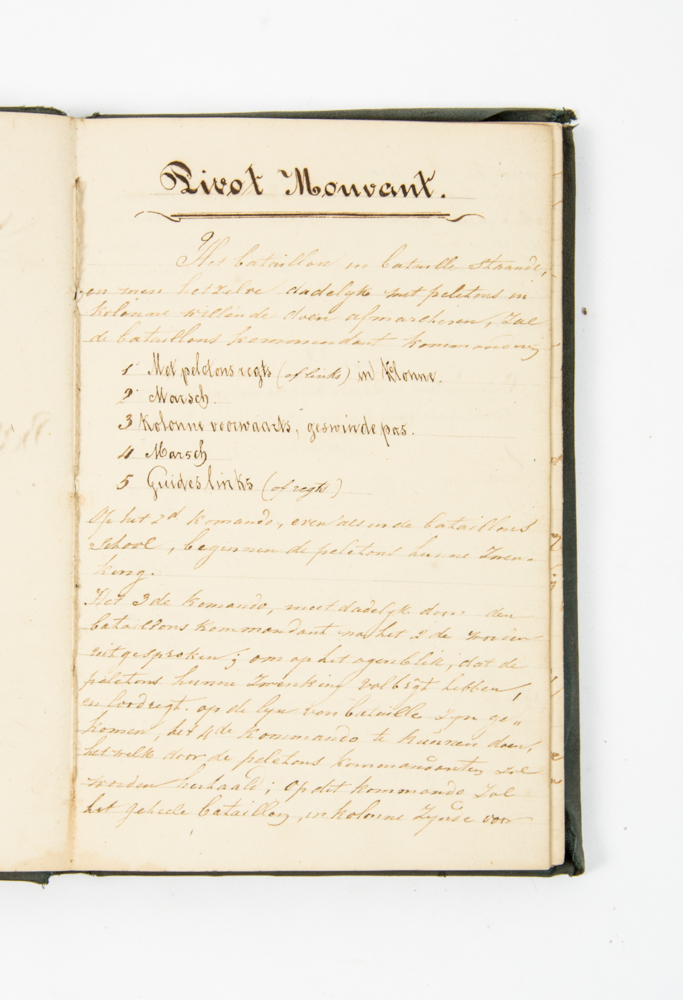 Pivot Mouvant.
Het bataillon in bataille staande,
en men hetzelve dadelyk met peletons in
kolonne willende doen afmarcheren, zal
de bataillons kommandant kommanderen
1 Met peletons regts (of links) in klonne.
2 Marsch.
3 Kolonne voorwaarts, geswinde pas.
4 Marsch
5 Guides links (of regts)
Op het 2d komando, even als in de bataillons
school, beginnen de peletons hunne zwen-
king.
Het 3de komando, moet dadelyk door den
bataillons kommandant na het 2de worden
uitgesproken; om op het ogenblik, dat de
peletons hunne zwenking volbragt hebben,
en loodregt op de lyn van bataille zyn ge„
komen, het 4de kommando te kunnen doen,
hetwelk door de peletons kommandanten zal
worden herhaald; op dit kommando zal
het geheele bataillon, in kolonne zynde voor